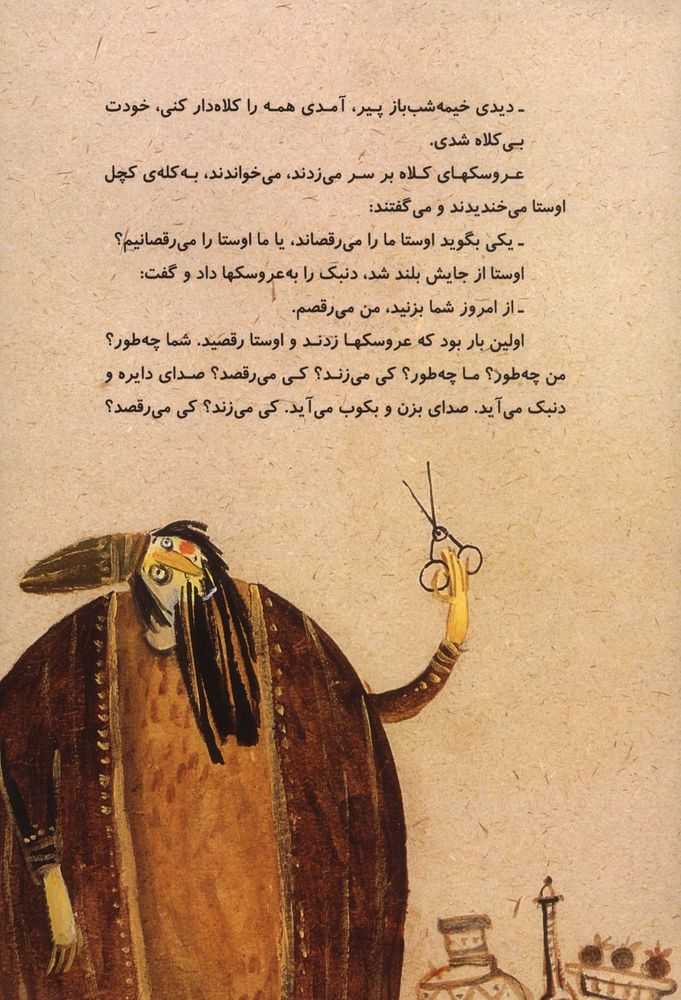 ـ دیدی خیمه‌شب‌باز پیر، آمدی همه را کلاه‌دار کنی، خودت
بی‌کلاه شدی.
عروسکهای کلاه بر سر می‌زدند، می‌خواندند، به‌کله‌ی کچل
اوستا می‌خندیدند و می‌گفتند:
ـ یکی بگوید اوستا ما را می‌رقصاند، یا ما اوستا را می‌رقصانیم؟
اوستا از جایش بلند شد، دنبک را به‌عروسکها داد و گفت:
ـ از امروز شما بزنید، من می‌رقصم.
اولین بار بود که عروسکها زدند و اوستا رقصید. شما چه‌طور؟
من چه‌طور؟ ما چه‌طور؟ کی می‌زند؟ کی می‌رقصد؟ صدای دایره و
دنبک می‌آید. صدای بزن و بکوب می‌آید. کی می‌زند؟ کی می‌رقصد؟